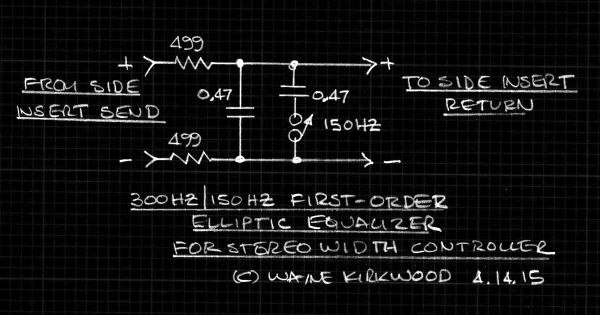 499
+ +
FROM SIDE
INSERT SEND
0.47
0.47
150HZ
TO SIDE INSERT
RETURN
499
- -
300HZ/150HZ FIRST-ORDER
ELLIPTIC EQUALIZER
FOR STEREO WIDTH CONTROLLER
(C) WAYNE KIRKWOOD 4.14.15